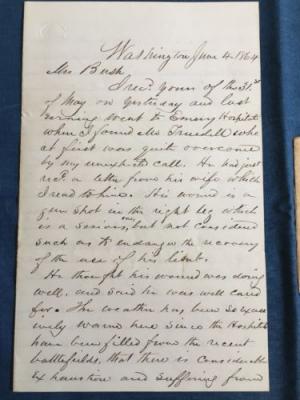 Washington June 4. 1864
Mrs Bush
I rec'd yours of the 31st
of May on yesterday and last
evening went to Emory Hospital
when I found Mr Truesdell who
at first was quite overcome
by my unexpected call. He had just
rec'd a letter from his wife which
I read to him. His wound is a
gun shot in the right leg which
is a serious one, but not considered
such as to endanger the recovery
of the use of his limb.
He thought his wound was doing
well, and said he was well cared
for. The weather has been so excess
ively warm here since the Hospitals
have been filled from the recent
battlefields, that there is considerable
exhaustion and suffering from